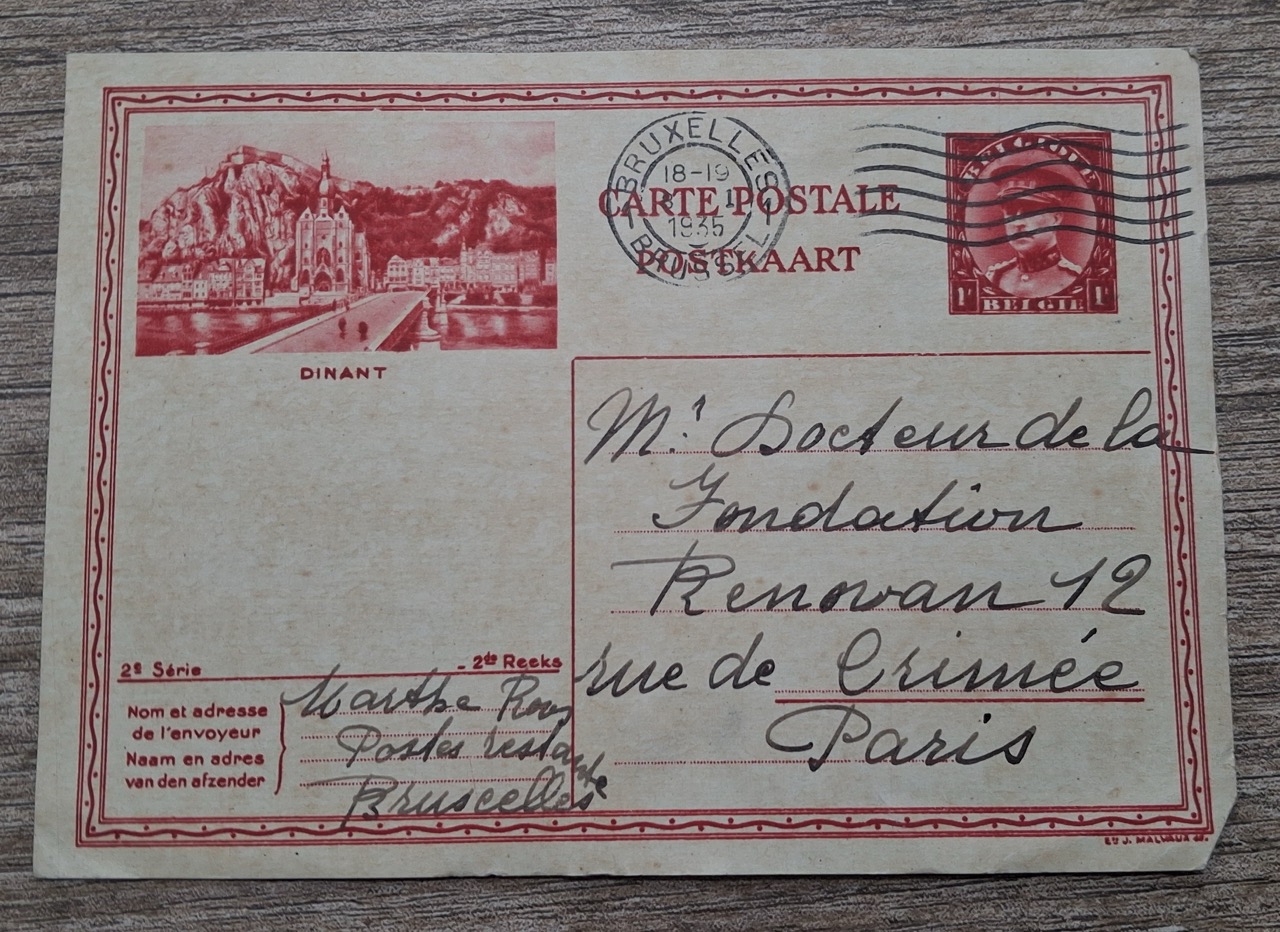 BRUXELLES 1
18-19
1935
BRUSSEL
CARTE POSTALE
POSTKAART
BELGIQUE
1F 1F
BELGIE
DINANT
Mr. Docteur de la
Fondation
Renowan 12
rue de Crimée
Paris
2e Série - 2de Reeks
Nom et adresse
de l'envoyeur
Naam en adres
van den afzender
Marthe
Postes restante
Bruscelles
Ets J. MALVAUX